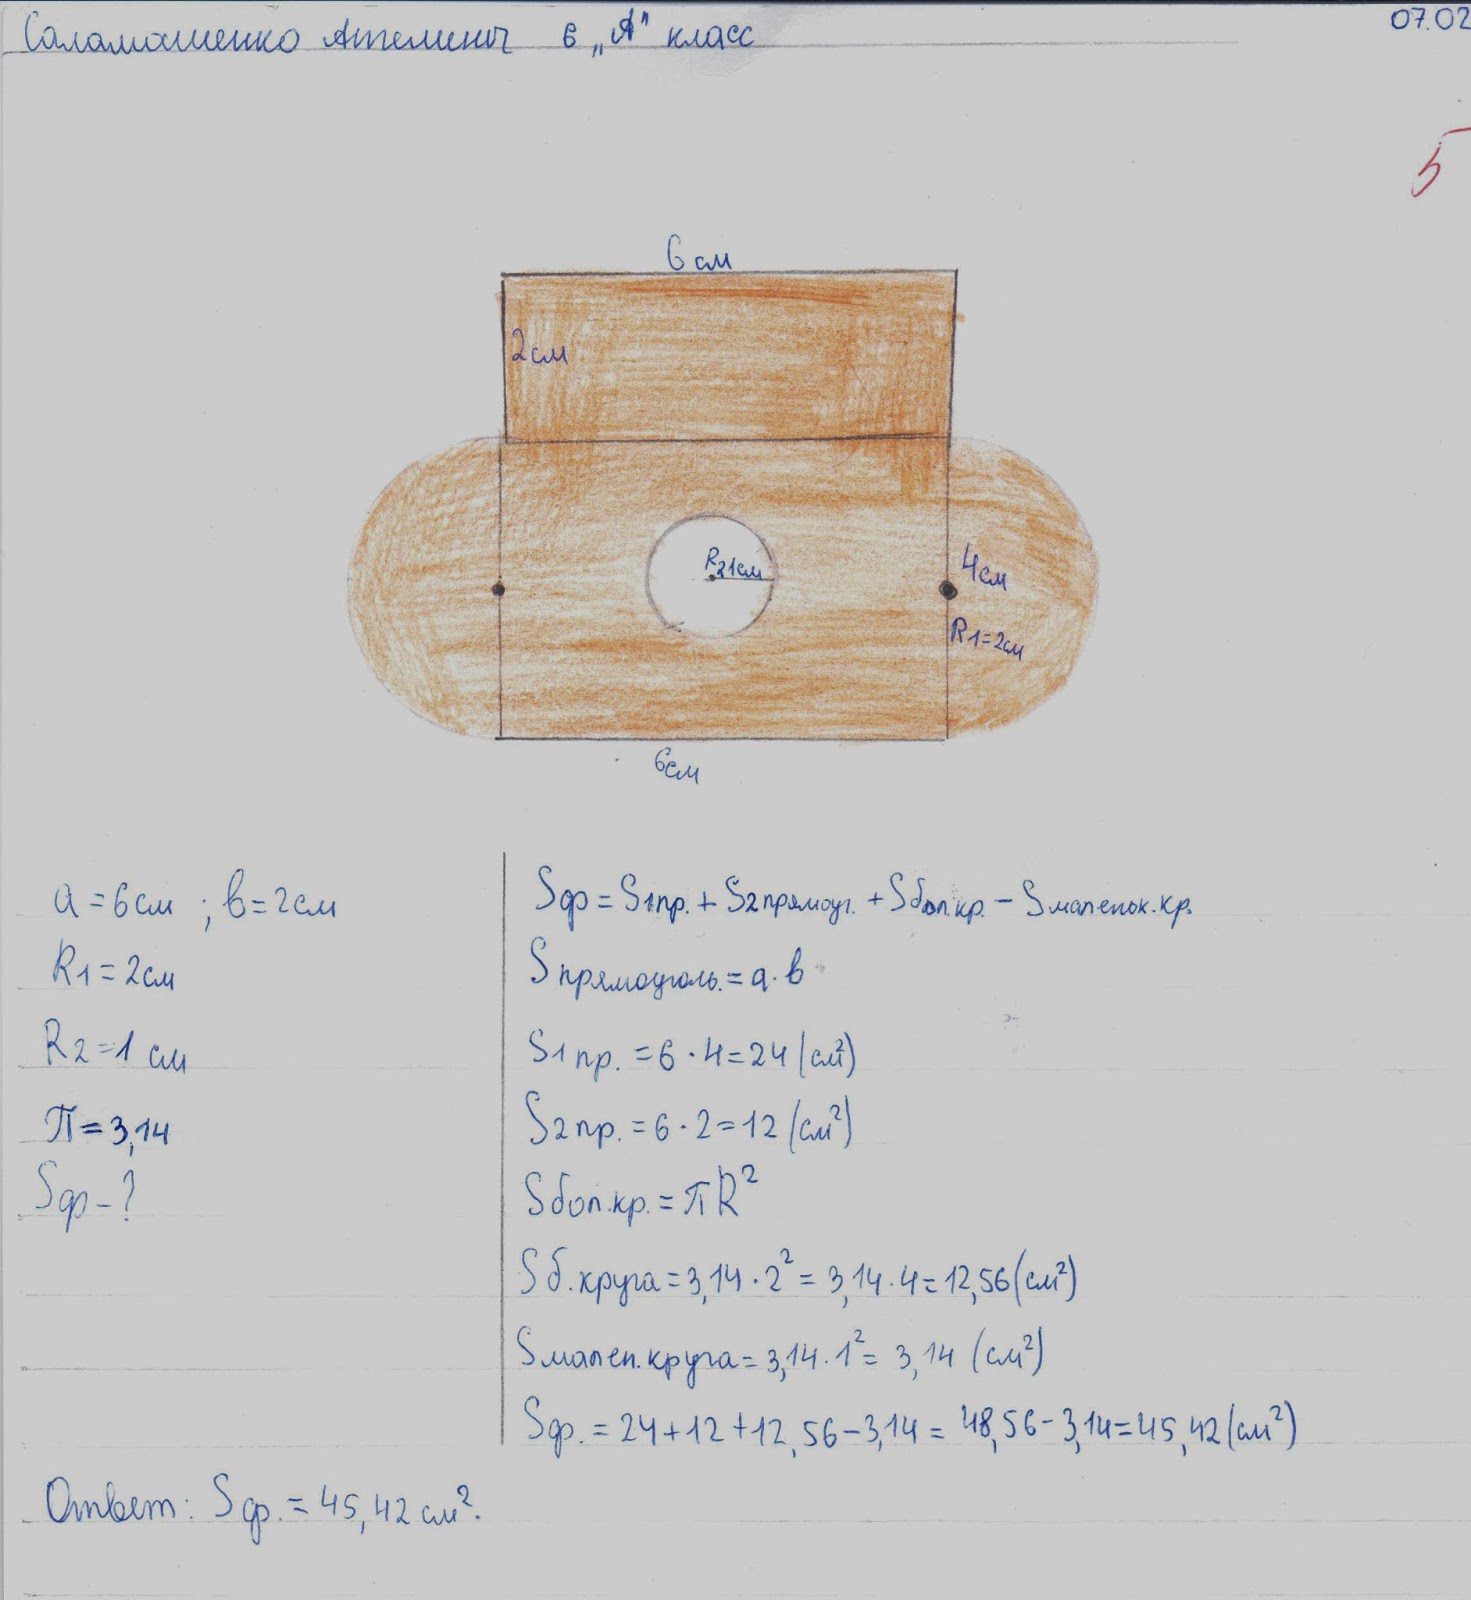 6 „А" класс
07.02
5
6 см
2 см
R2 1см
4 см
R1=2см
6см
а = 6 см ; в = 2 см
R1 = 2 см
R2 = 1 см
П = 3,14
Sф - ?
Sф = S1пр. + S2прямоуг. + Sбол.кр. - Sмаленьк.кр.
Sпрямоуголь. = а · в
S1 пр. = 6 · 4 = 24 (см²)
S2 пр. = 6 · 2 = 12 (см²)
Sбол.кр. = πR²
Sб.круга = 3,14 · 2² = 3,14 · 4 = 12,56 (см²)
Sмален.круга = 3,14 · 1² = 3,14 (см²)
Sф. = 24 + 12 + 12,56 - 3,14 = 48,56 - 3,14 = 45,42 (см²)
Ответ: Sф. = 45,42 см².